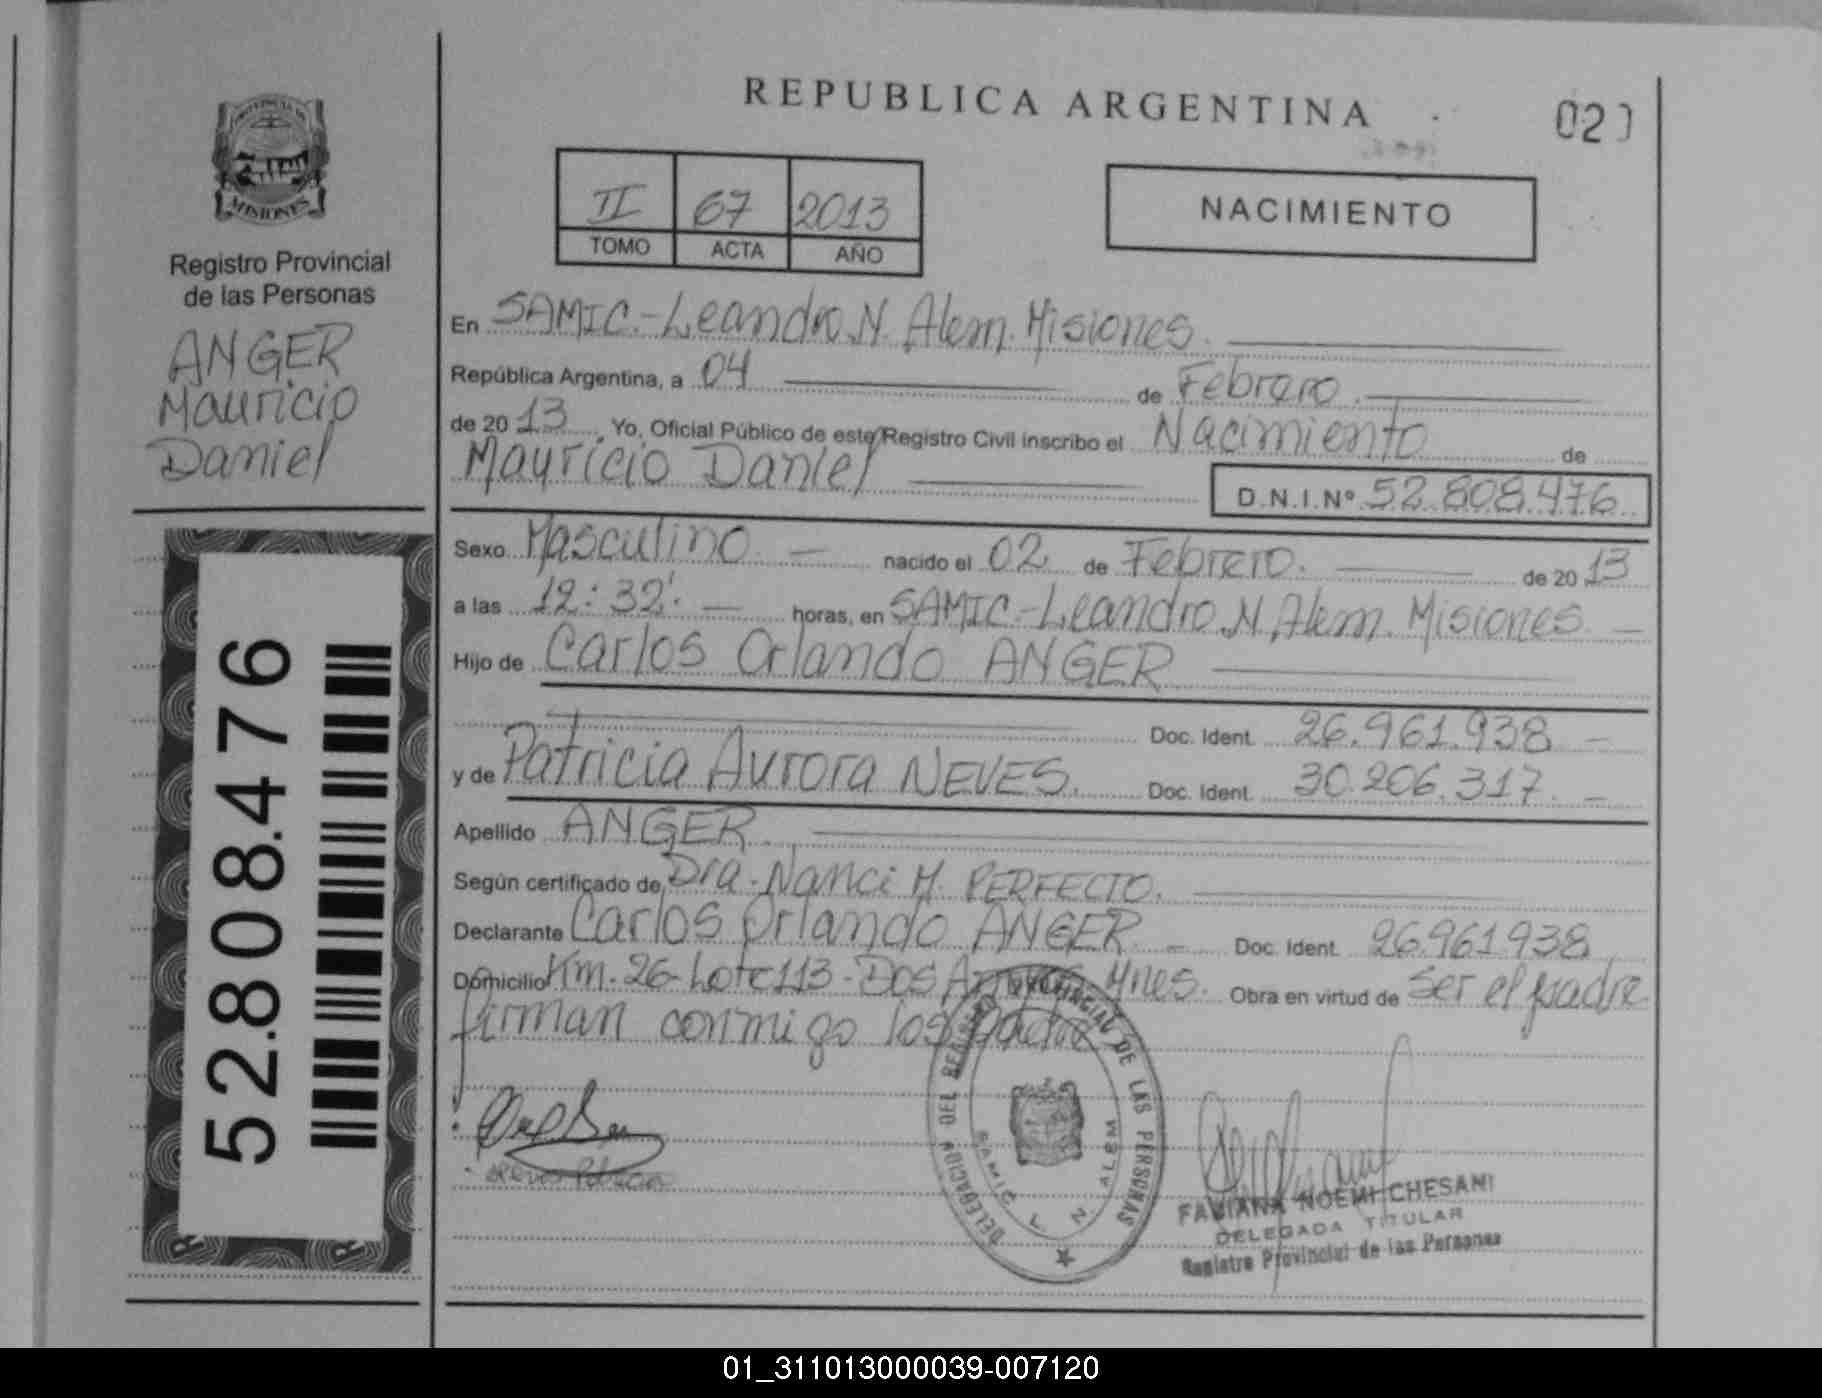 REPUBLICA ARGENTINA
PROVINCIA DE
MISIONES
Registro Provincial
de las Personas
ANGER
Mauricio
Daniel
52.808.476
II 67 2013
TOMO ACTA AÑO
NACIMIENTO
En SAMIC.-Leandro N. Alem. Misiones.
República Argentina, a 04 de Febrero.
de 2013. Yo, Oficial Público de este Registro Civil inscribo el Nacimiento de
Mauricio Daniel D.N.I.Nº 52.808.476
Sexo Masculino - nacido el 02 de Febrero. de 2013
a las 12:32'. - horas, en SAMIC.-Leandro N. Alem. Misiones. -
Hijo de Carlos Orlando ANGER
Doc. Ident. 26.961.938 -
y de Patricia Aurora NEVES. Doc. Ident. 30.206.317. -
Apellido ANGER
Según certificado de Dra. Nanci M. PERFECTO.
Declarante Carlos Orlando ANGER - Doc. Ident. 26.961.938
Domicilio Km. 26-Lote 113-Dos Arroyos Mnes. Obra en virtud de ser el padre
firman conmigo los padres
DELEGACION DEL REGISTRO PROVINCIAL DE LAS PERSONAS
SAMIC L. N. ALEM
FABIANA NOEMI CHESANI
DELEGADA TITULAR
Registro Provincial de las Personas
01_311013000039-007120